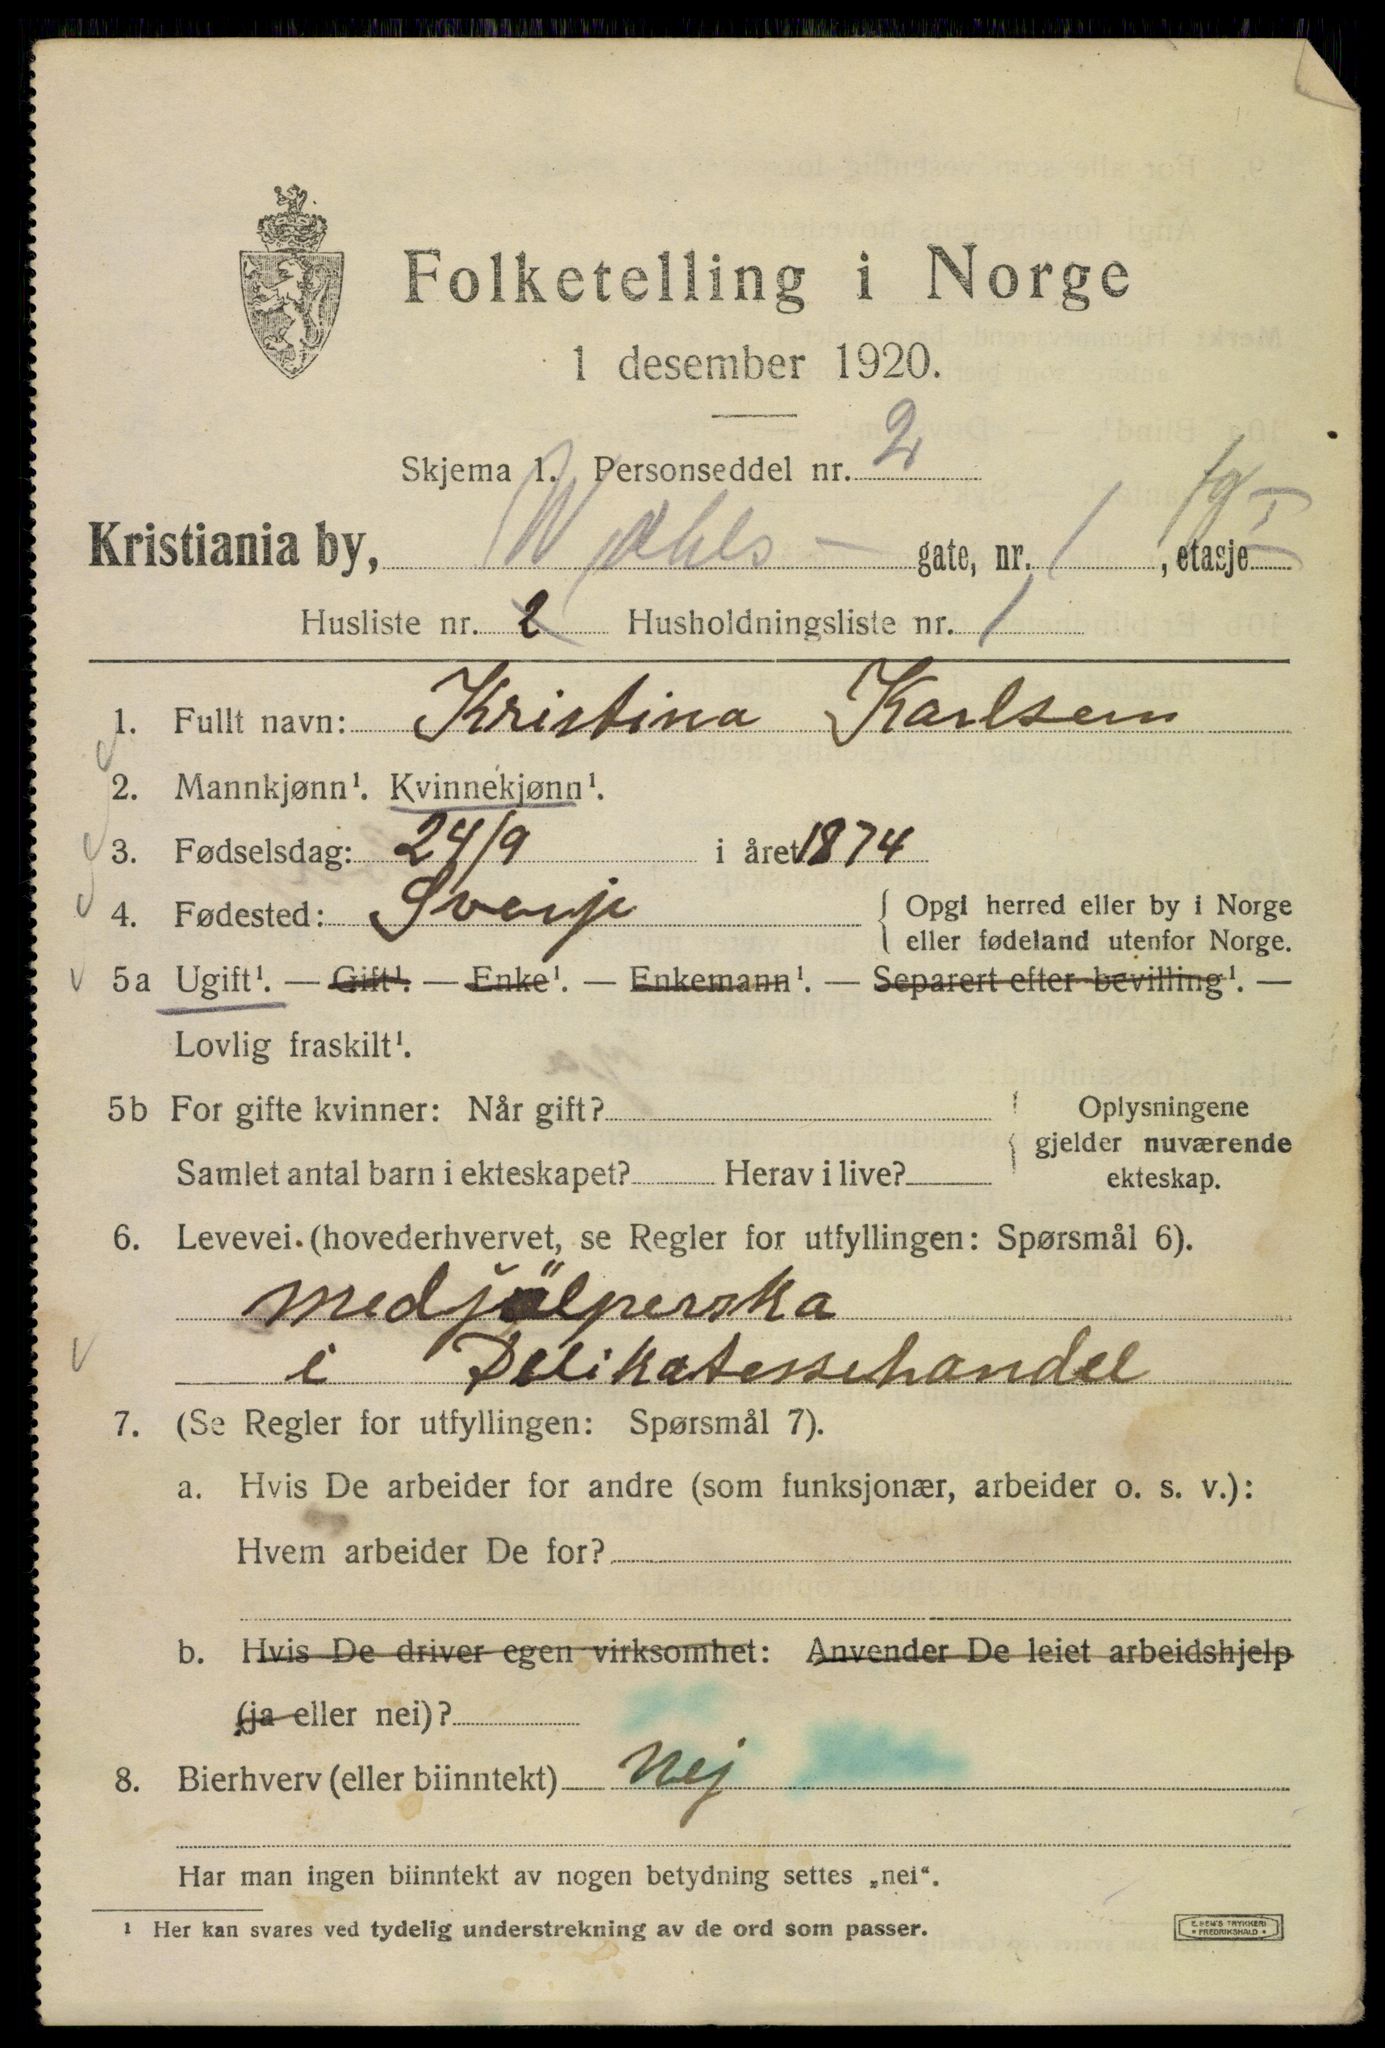 Folketelling i Norge
1 desember 1920.
Skjema 1. Personseddel nr. 2
Kristiania by, Wdahls - gate, nr. 1, etasje I
Husliste nr. 2 Husholdningsliste nr. 1
1. Fullt navn: Kristina Karlsem
2. Mannkjønn¹. Kvinnekjønn¹.
3. Fødselsdag: 24/9 i året 1874
4. Fødested: Sverje { Opgi herred eller by i Norge
eller fødeland utenfor Norge.
5a Ugift¹. — Gift¹. — Enke¹. — Enkemann¹. — Separert efter bevilling¹. —
Lovlig fraskilt¹.
5b For gifte kvinner: Når gift? Oplysningene
gjelder nuværende
Samlet antal barn i ekteskapet? Herav i live? ekteskap.
6. Levevei (hovederhvervet, se Regler for utfyllingen: Spørsmål 6).
medjälperska
i Delikatessehandel
7. (Se Regler for utfyllingen: Spørsmål 7).
a. Hvis De arbeider for andre (som funksjonær, arbeider o. s. v.):
Hvem arbeider De for?
b. Hvis De driver egen virksomhet: Anvender De leiet arbeidshjelp
(ja eller nei)?
8. Bierhverv (eller biinntekt) Nej
Har man ingen biinntekt av nogen betydning settes „nei“.
¹ Her kan svares ved tydelig understrekning av de ord som passer.
E. SEM'S TRYKKERI
• FREDRIKSHALD •